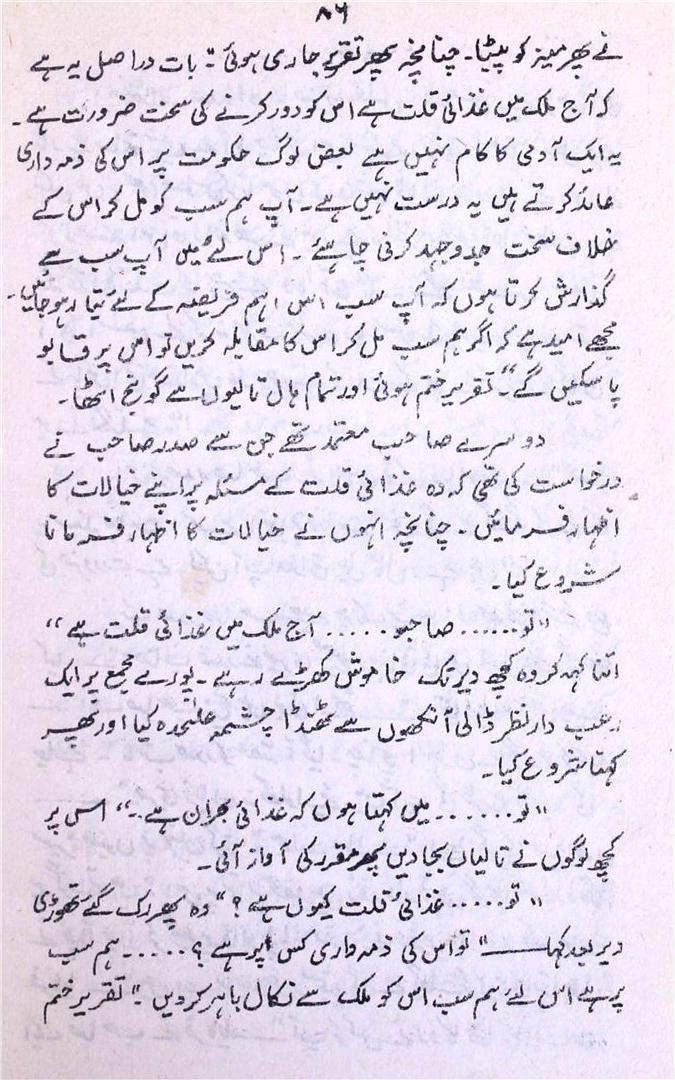 ۸۶
نے پھر میز کو پیٹا۔ چنانچہ پھر تقریر جاری ہوئی "بات دراصل یہ ہے
کہ آج ملک میں غذائی قلت ہے اس کو دور کرنے کی سخت ضرورت ہے۔
یہ ایک آدمی کا کام نہیں ہے بعض لوگ حکومت پر اس کی ذمہ داری
عائد کرتے ہیں یہ درست نہیں ہے۔ آپ ہم سب کو مل کر اس کے
خلاف سخت جدوجہد کرنی چاہئے۔ اس لئے میں آپ سب سے
گذارش کرتا ہوں کہ آپ سب اس اہم فریضہ کے لئے تیار ہوجائیں۔
مجھے امید ہے کہ اگر ہم سب مل کر اس کا مقابلہ کریں تو اس پر قابو
پا سکیں گے" تقریر ختم ہوئی اور تمام ہال تالیوں سے گونج اٹھا۔
دوسرے صاحب معتمد تھے جن سے صدر صاحب نے
درخواست کی تھی کہ وہ غذائی قلت کے مسئلہ پر اپنے خیالات کا
اظہار فرمائیں۔ چنانچہ انہوں نے خیالات کا اظہار فرمانا
شروع کیا۔
"تو...... صاحبو...... آج ملک میں غذائی قلت ہے"
اتنا کہہ کر وہ کچھ دیر تک خاموش کھڑے رہے۔ پورے مجمع پر ایک
رعب دار نظر ڈالی آنکھوں سے ٹھنڈا چشمہ علٰحدہ کیا اور پھر
کہنا شروع کیا۔
"تو....... میں کہتا ہوں کہ غذائی بحران ہے۔" اس پر
کچھ لوگوں نے تالیاں بجا دیں پھر مقرر کی آواز آئی۔
"تو...... غذائی قلت کیوں ہے؟" وہ پھر رک گئے تھوڑی
دیر بعد کہا ــــــ "تو اس کی ذمہ داری کس پر ہے؟..... ہم سب
پر ہے اس لئے ہم سب اس کو ملک سے نکال باہر کردیں۔" تقریر ختم